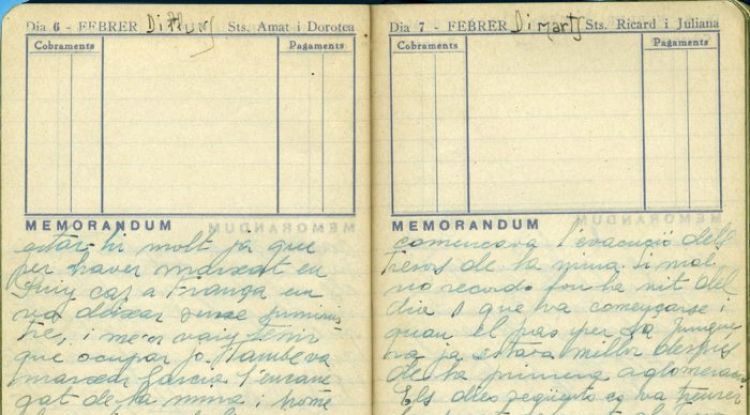 Dia 6 - FEBRER Dilluns Sts. Amat i Dorotea
Cobraments Pagaments
MEMORANDUM
estar-hi molt ja que
per haver marxat en
Puig cap a França em
va deixar sense suminis-
tre, i me'n vaig tenir
que ocupar jo. També va
marxar Garcia l'encarre-
gat de la mina i home
Dia 7 - FEBRER Dimarts Sts. Ricard i Juliana
Cobraments Pagaments
MEMORANDUM
començava l'evacució dels
tresors de la mina. Si mal
no recordo fou la nit del
dia 8 que va começarse i
quan el pas per La Junque
ra ja estava millor després
de la primera aglomeració
Els dies següents es va treurer